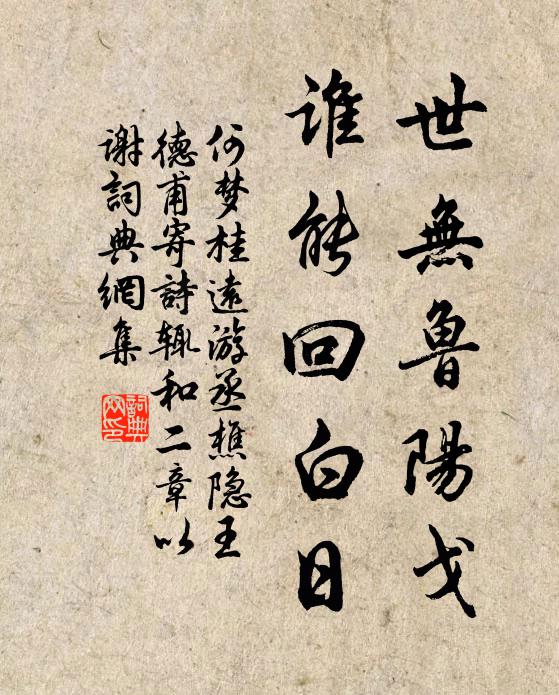 世無魯陽戈
誰能回白日
何梦桂遠游丞樵隐王
德甫寄詩辄和二章以
謝詞典網集
詞典
网印